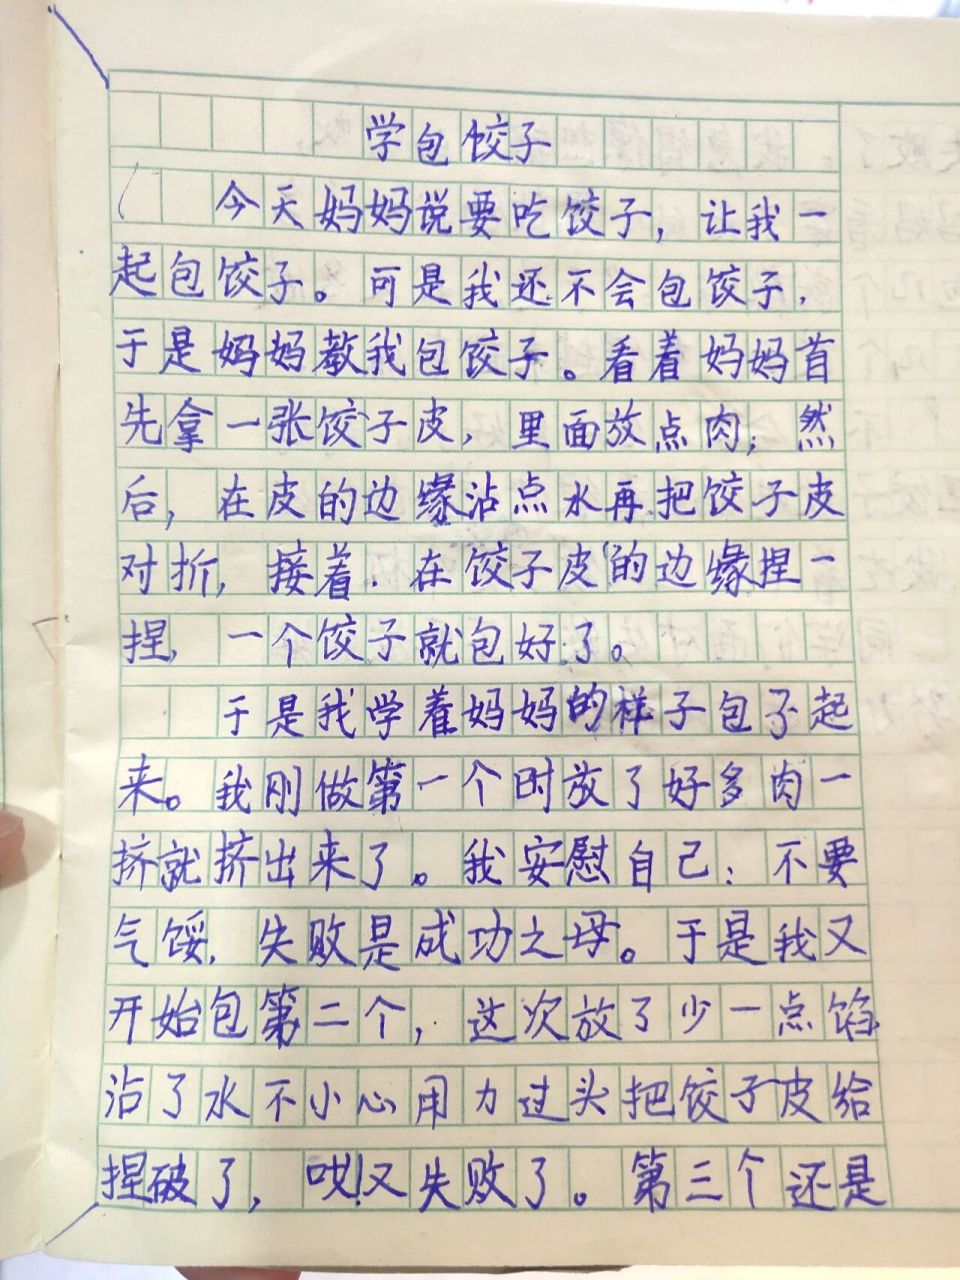 学包饺子
今天妈妈说要吃饺子，让我一
起包饺子。可是我还不会包饺子，
于是妈妈教我包饺子。看着妈妈首
先拿一张饺子皮，里面放点肉；然
后，在皮的边缘沾点水再把饺子皮
对折，接着．在饺子皮的边缘捏一
捏，一个饺子就包好了。
于是我学着妈妈的样子包子起
来。我刚做第一个时放了好多肉一
挤就挤出来了。我安慰自己：不要
气馁，失败是成功之母。于是我又
开始包第二个，这次放了少一点馅
沾了水不小心用力过头把饺子皮给
捏破了，哎！又失败了。第三个还是